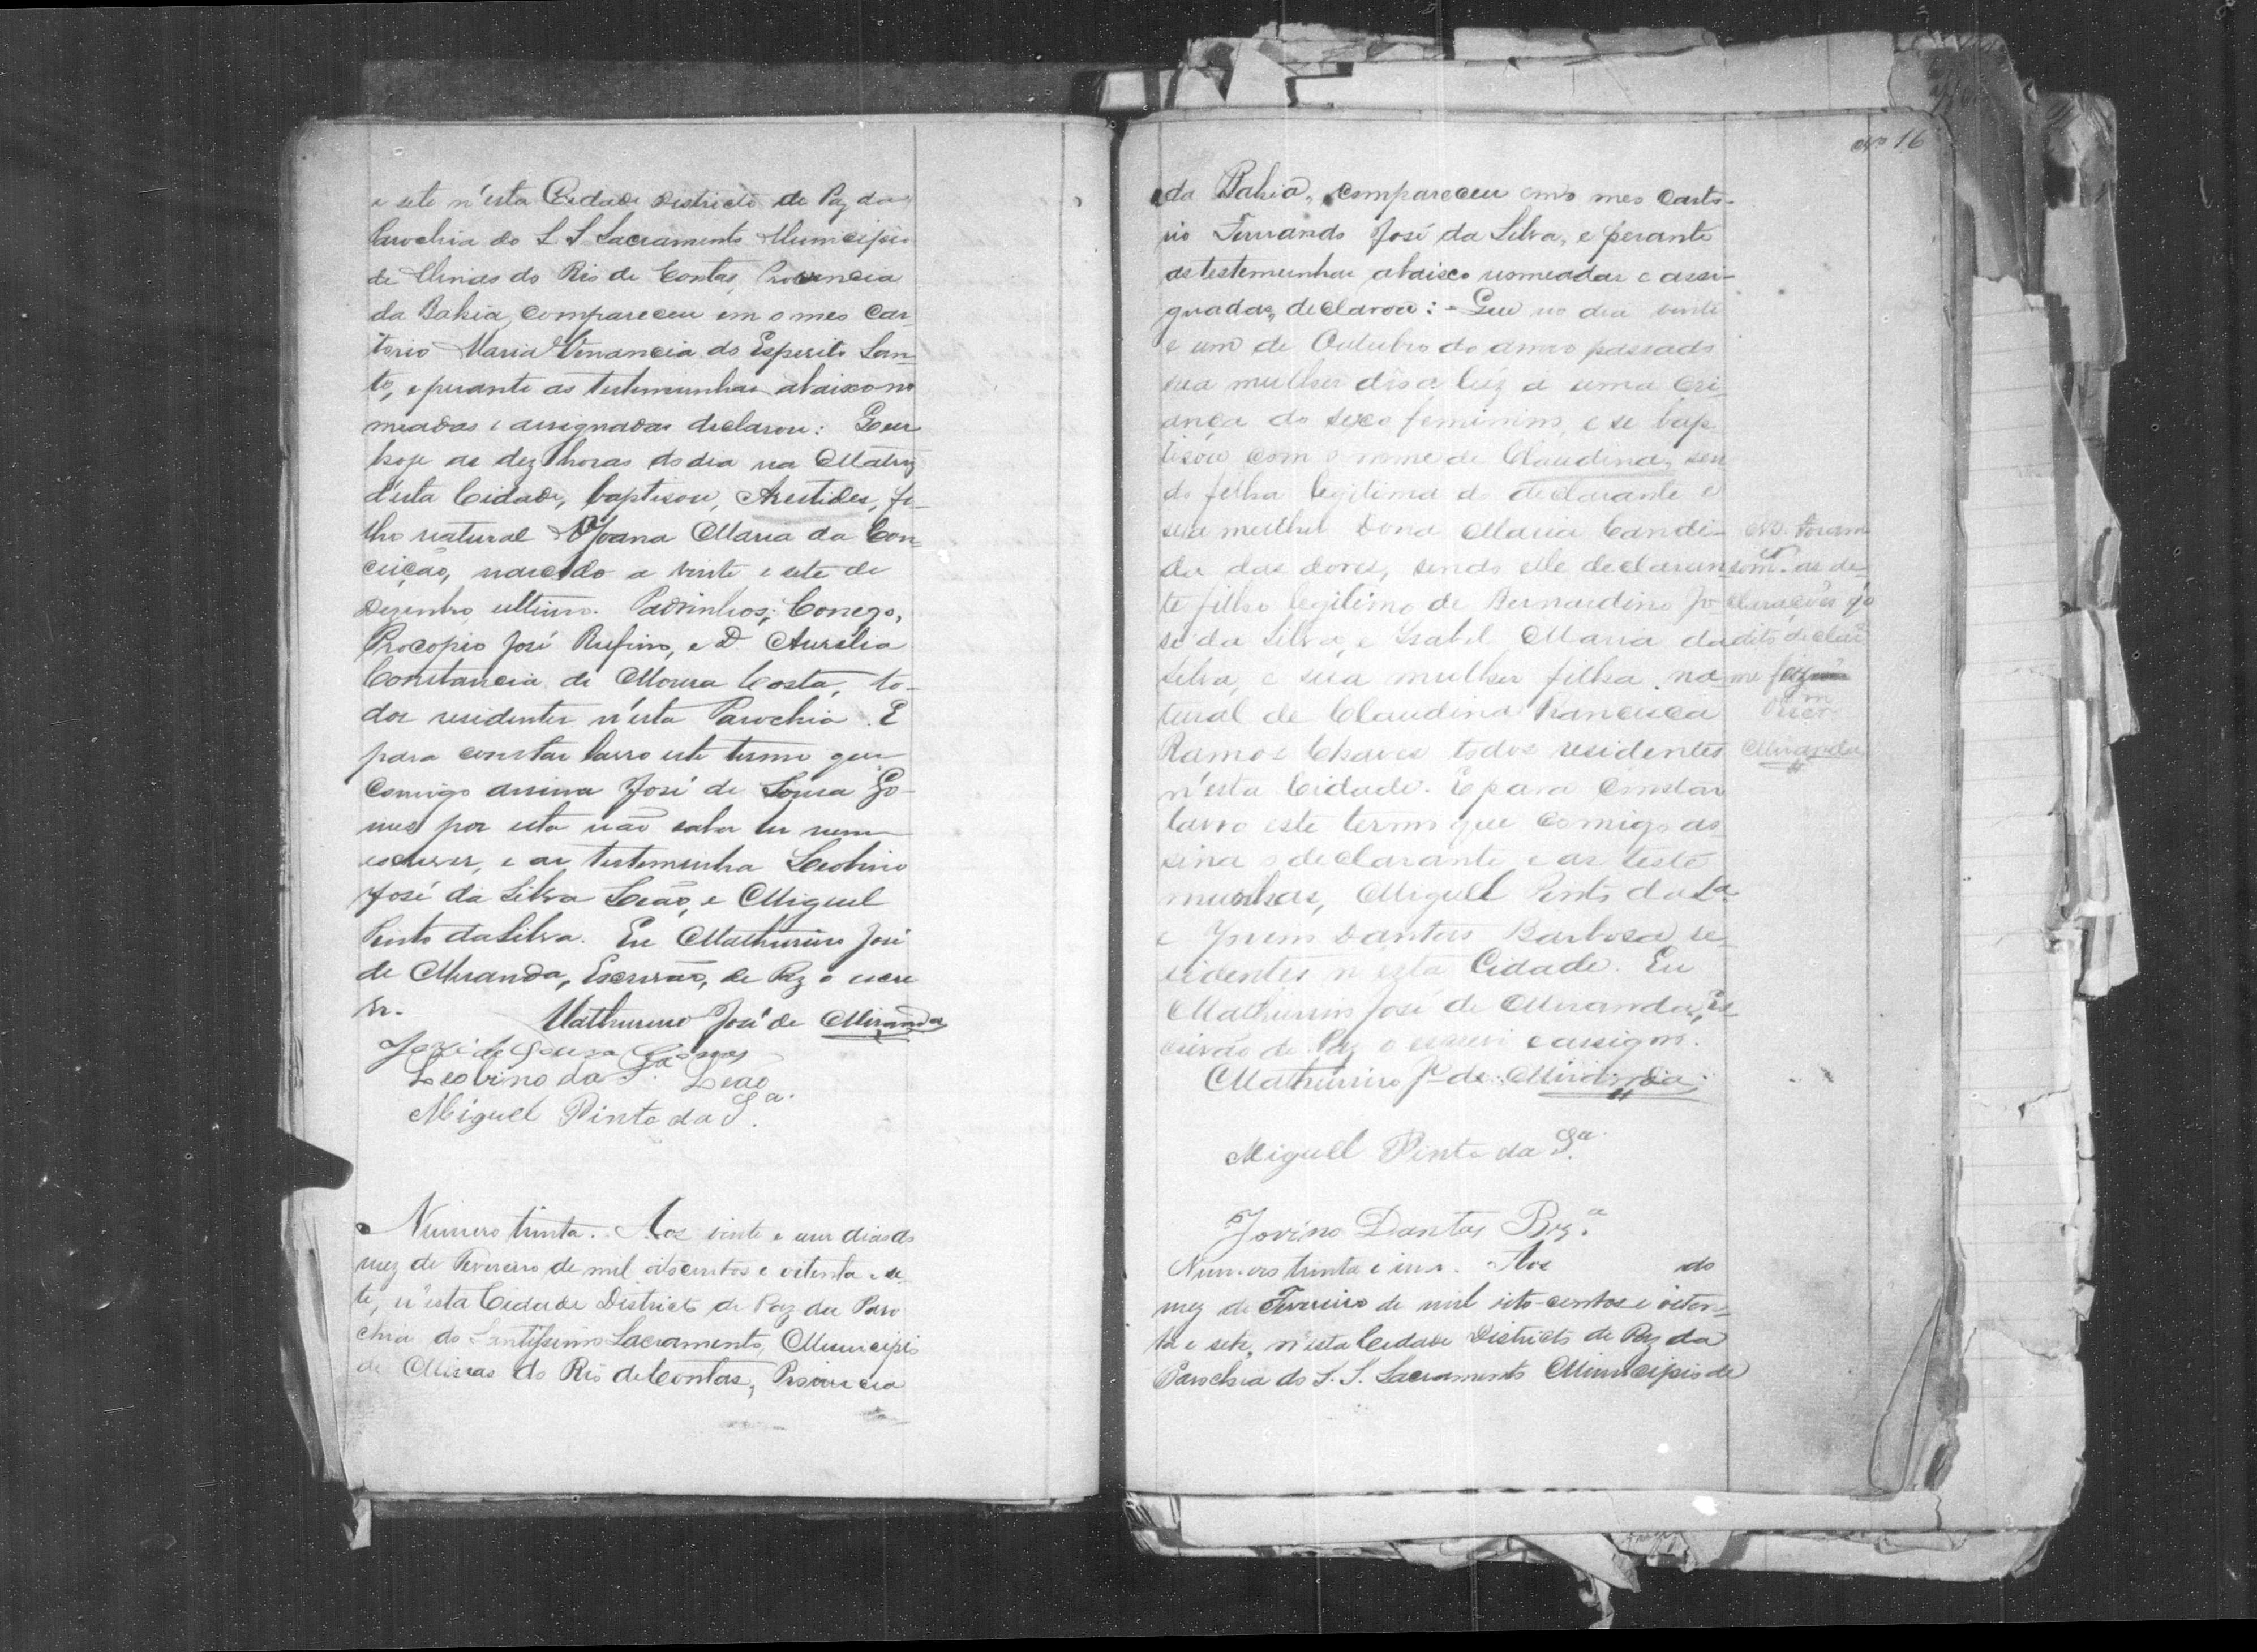 e sete n'esta Cidade Districto de Paz da
Parochia do S S Sacramento Municipio
de Minas do Rio de Contas, Provincia
da Bahia, compareceu em o meo Car-
torio Maria Venancia do Esperito San-
to, e perante as testemunhas abaixo no
meadas e assignadas declarou: Que
hoje as dez horas do dia na Matriz
d'esta Cidade, baptisou, Arestides, fi-
lho natural Joana Maria da Con-
ceição, nascido a vinte e sete de
Dezembro ultimo. Padrinhos; Conego,
Procopio José Rufino, e D Aurelia
Constancia de Moura Costa, to-
dos residentes n'esta Parochia. E
para constar lavro este termo que
comigo assina José de Sousa Go-
mes por esta não saber ler nem
escrever, e as testemunha Leobino
José da Silva Leão, e Miguel
Pinto da Silva. Eu Mathurino José
de Miranda, Escrivão, de Paz o escre
vi.
Mathurino José de Miranda
José de Sousa Gomes
Leobino da Sª Leão
Miguel Pinto da Sª.
Numero trinta. Aos vinte e um dias do
mez de Fevereiro de mil oitocentos e oitenta e se
te, n'esta Cidade Districto de Paz da Paro
chia do Santissimo Sacramento, Municipio
de Minas do Rio de Contas, Provincia
Nº 16
da Bahia, compareceu em o meo Carto-
rio Fernando José da Silva, e perante
as testemunhas abaixo nomeadas e assi-
gnadas, declarou: - Que no dia vinte
e um de Outubro do anno passado
sua mulher dis a luz a uma cri-
ança do sexo feminino, e se bap-
tisou com o nome de Claudina, sen
do filha legitima do declarante e
sua mulher Dona Maria Candi-
da das Dores, sendo elle declaran
te filho legitimo de Bernardino Jo
sé da Silva, e Isabel Maria da
Silva, e sua mulher filha na-
tural de Claudina Francisca
Ramos Chaves todos residentes
n'esta Cidade. E para constar
lavro este termo que comigo as
sina o declarante e as teste
munhas, Miguel Pinto da Sª
e Jovino Dantas Barbosa re-
sidentes n'esta Cidade. Eu
Mathurino José de Miranda, Es-
crivão de Paz o escrevi e assigno.
Mathurino Jé de Miranda
N.B. Foram
as de-
clarações
dito
me
Miranda
Miguel Pinto da Sª.
Jovino Dantas Brzª.
Numero trinta e um. Aos do
mez de Fevereiro de mil oito-centos e oiten-
ta e sete, n'esta Cidade Districto de Paz da
Parochia do S. S. Sacramento Municipio de